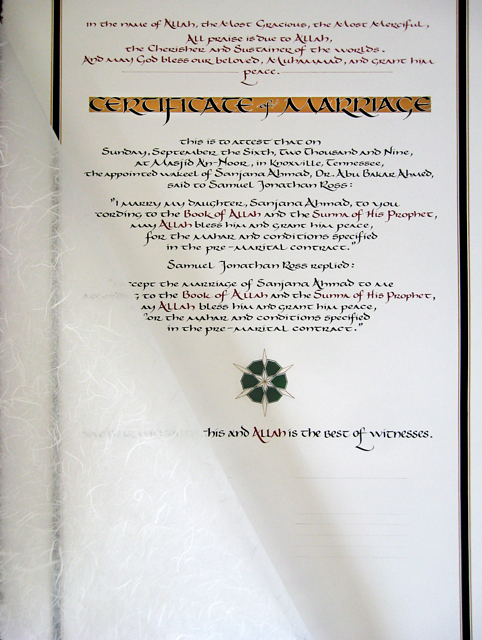 in the name of Allah, the Most Gracious, the Most Merciful,
All praise is due to Allah,
the Cherisher and Sustainer of the worlds.
And may God bless our beloved, Muhammad, and grant him
peace.
CERTIFICATE of MARRIAGE
this is to attest that on
Sunday, September the Sixth, Two Thousand and Nine,
at Masjid An-Noor, in Knoxville, Tennessee,
the appointed wakeel of Sanjana Ahmad, Dr. Abu Bakar Ahmed,
said to Samuel Jonathan Ross:
"I marry my daughter, Sanjana Ahmad, to you
cording to the Book of Allah and the Sunna of His Prophet,
may Allah bless him and grant him peace,
for the mahar and conditions specified
in the pre-marital contract."
Samuel Jonathan Ross replied:
cept the marriage of Sanjana Ahmad to me
g to the Book of Allah and the Sunna of His Prophet,
ay Allah bless him and grant him peace,
or the mahar and conditions specified
in the pre-marital contract."
this and Allah is the Best of witnesses.